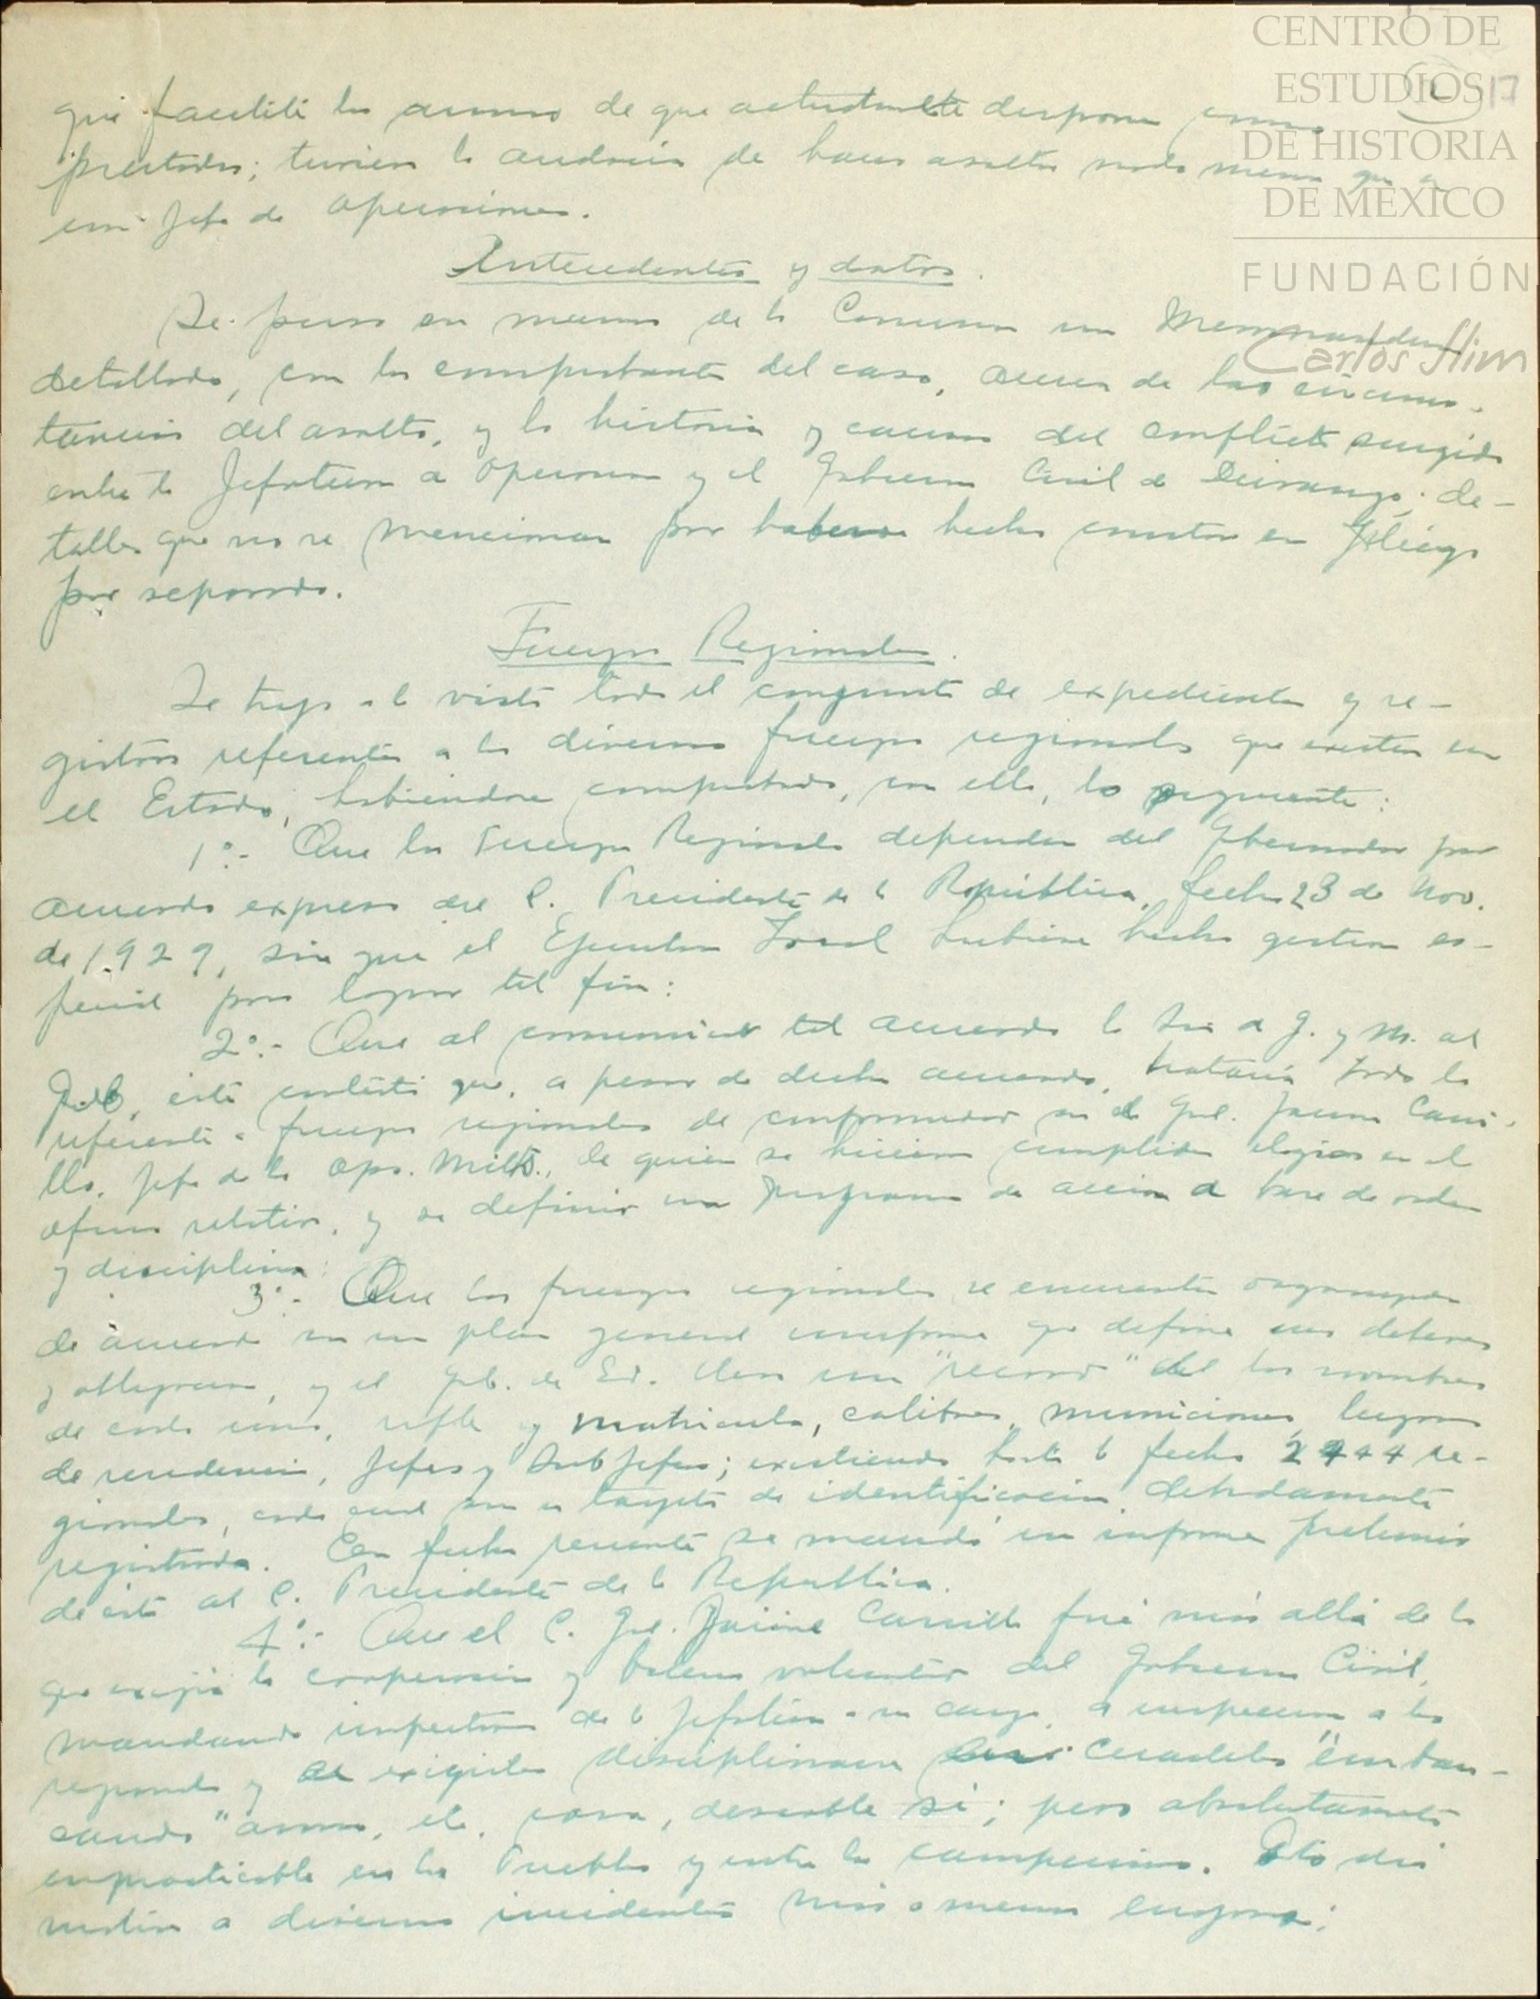 CENTRO DE
ESTUDIOS 17
DE HISTORIA
DE MEXICO
FUNDACIÓN
Carlos Slim
que facilité las armas de que actualmente dispone como
prestadas; tuviera la audacia de hacer asaltar nada menos que a
un Jefe de Operaciones.
Antecedentes y datos.
Se puso en manos de la Comision un Memorandum
detallado, con los comprobantes del caso, acerca de las circuns-
tancias del asalto, y la historia y causas del conflicto surgido
entre la Jefatura de Operaciones y el Gobierno Civil de Durango; de-
talles que no se mencionan por haberse hecho constar en pliego
por separado.
Fuerzas Regionales.
Se trajo a la vista todo el conjunto de expedientes y re-
gistros referentes a las diversas fuerzas regionales que existen en
el Estado, habiendose comprobado, con ello, lo siguiente:
1º.- Que las Fuerzas Regionales dependen del Gobernador por
acuerdo expreso del C. Presidente de la República, fecha 23 de Nov.
de 1.929, sin que el Ejecutivo Local hubiera hecho gestion es-
pecial para lograr tal fin:
2º.- Que al comunicar tal acuerdo la Sria de G. y M. al
Gob, éste contestó que, a pesar de dicho acuerdo, trataria todo lo
referente a fuerzas regionales de conformidad con el Gral. Jaime Carri-
llo, Jefe de las Ops. Milts., de quien se hicieron cumplidos elogios en el
oficio relativo, y se definio un programa de accion a base de orden
y disciplina:
3º.- Que las fuerzas regionales se encuentran organizadas
de acuerdo con un plan general uniforme que define sus deberes
y obligaciones, y el Gob. del Ed. lleva un "record" del los nombres
de cada uno, rifle y matricula, calibres, municiones, lugares
de residencia, Jefes y Sub Jefes; existiendo hasta la fecha 2444 re-
gionales, cada cual con su tarjeta de identificacion, debidamente
registrada. Con fecha reciente se mandó un informe
de esto al C. Presidente de la Republica.
4º.- Que el C. Gral. Jaime Carrillo fué más allá de lo
que exigia la cooperacion y buena voluntad del Gobierno Civil,
mandando inspectores de la Jefatura a su cargo, a inspeccionar a los
regionales y a exigirles disciplina cuarteles "emban-
cando" armas, etc. cosa, deseable si; pero absolutamente
impracticable en los Pueblos y entre los campesinos. Esto dió
motivo a diversos incidentes más o menos enojosos: